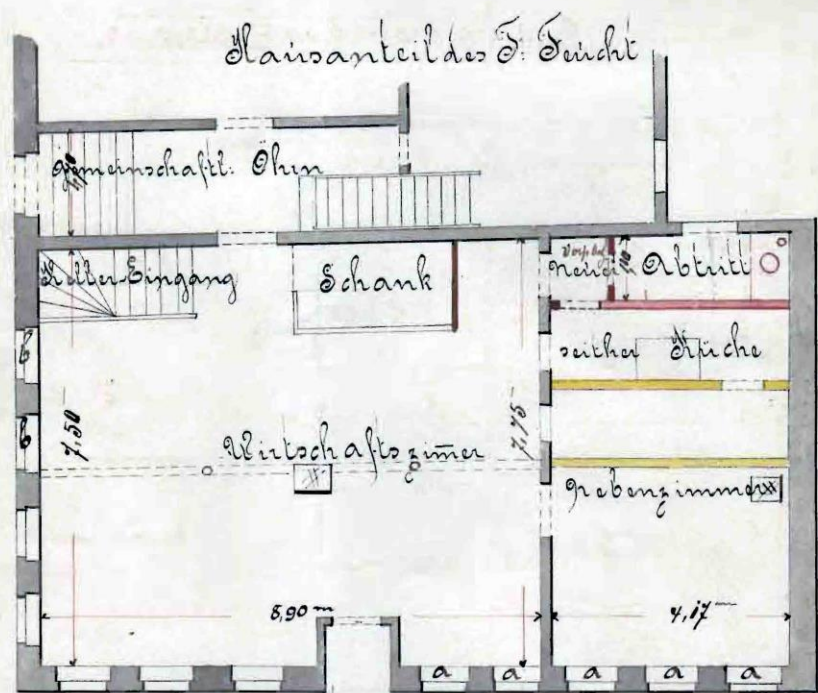 Hausanteil des F. Feucht
gemeinschaftl. Öhrn
Keller-Eingang
Schank
Vorplatz
neuer Abtritt
1,10
seither Küche
b
b
7,50 m
7,75 m
Wirtschaftszim̄er
Nebenzimmer
8,90 m
4,17 m
a
a
a
a
a